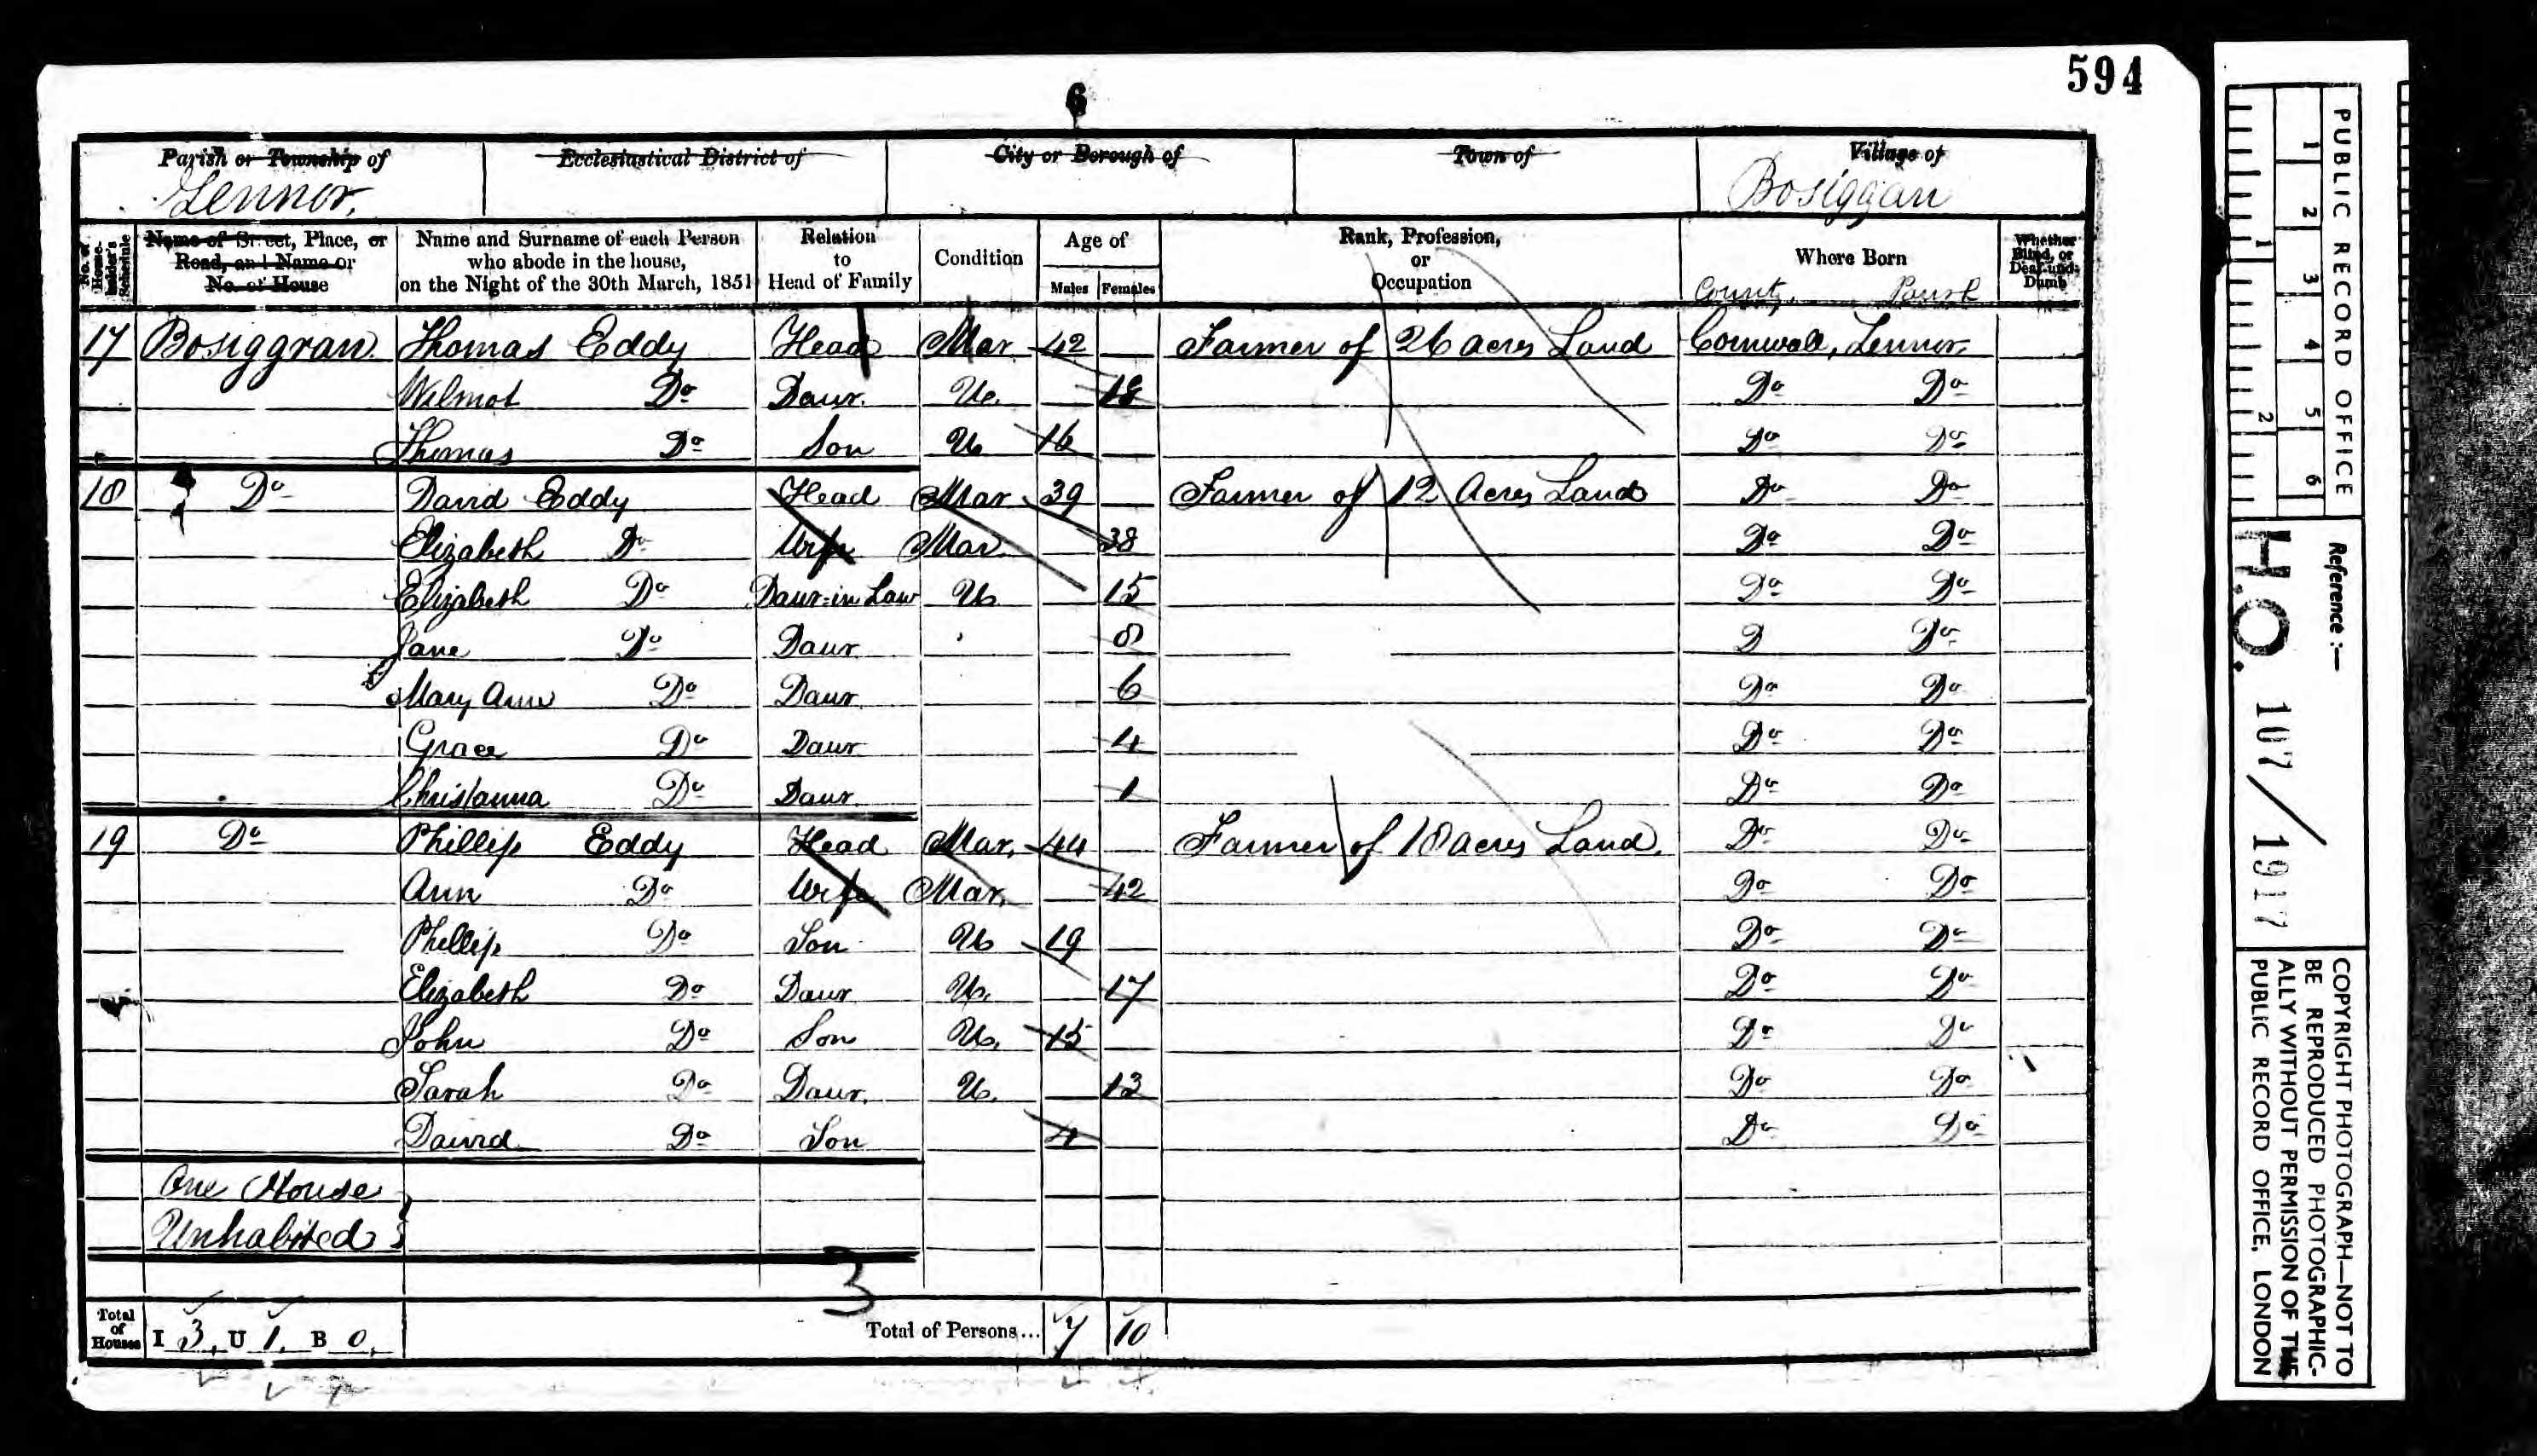 594
6
Parish or Township of Ecclesiastical District of City or Borough of Town of Village of
Zennor, Bosiggan
No. of House-holder's Schedule
Name of Street, Place, or Road, and Name or No. of House
Name and Surname of each Person who abode in the house, on the Night of the 30th March, 1851
Relation to Head of Family
Condition
Age of
Males Females
Rank, Profession, or Occupation
Where Born
County, Parish
Whether Blind, or Deaf-and-Dumb
17 Bosiggran Thomas Eddy Head Mar 42 Farmer of 26 acres Land Cornwall, Zennor
Wilmot Do Daur. Un. 18 Do Do
Thomas Do Son Un 16 Do Do
18 Do David Eddy Head Mar 39 Farmer of 12 Acres Land Do Do
Elizabeth Do Wife Mar 38 Do Do
Elizabeth Do Daur-in Law Un 15 Do Do
Jane Do Daur 8 D Do
Mary Ann Do Daur 6 Do Do
Grace Do Daur 4 Do Do
Christanna Do Daur 1 Do Do
19 Do Phillip Eddy Head Mar. 44 Farmer of 18 acres Land. Do Do
Ann Do Wife Mar. 42 Do Do
Phillip Do Son Un 19 Do Do
Elizabeth Do Daur Un. 17 Do Do
John Do Son Un. 15 Do Do
Sarah Do Daur. Un. 13 Do Do
David Do Son 4 Do Do
One House
Unhabited
3
Total of Houses I 3, U 1, B 0, Total of Persons... 7 10
PUBLIC RECORD OFFICE
1 2 3 4 5 6
1 2
Reference :—
H.O. 107/1917
COPYRIGHT PHOTOGRAPH—NOT TO
BE REPRODUCED PHOTOGRAPHIC-
ALLY WITHOUT PERMISSION OF THE
PUBLIC RECORD OFFICE, LONDON